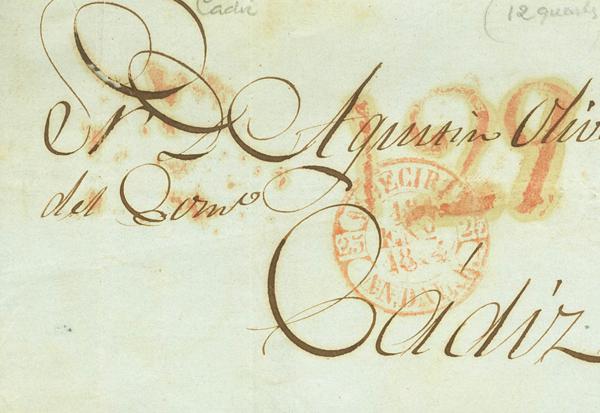 Cadiz
(12 quarts
Sr. D. Agustin Oliv
del Como
Cádiz
ECIJA
18
ENO
184
ANDAL